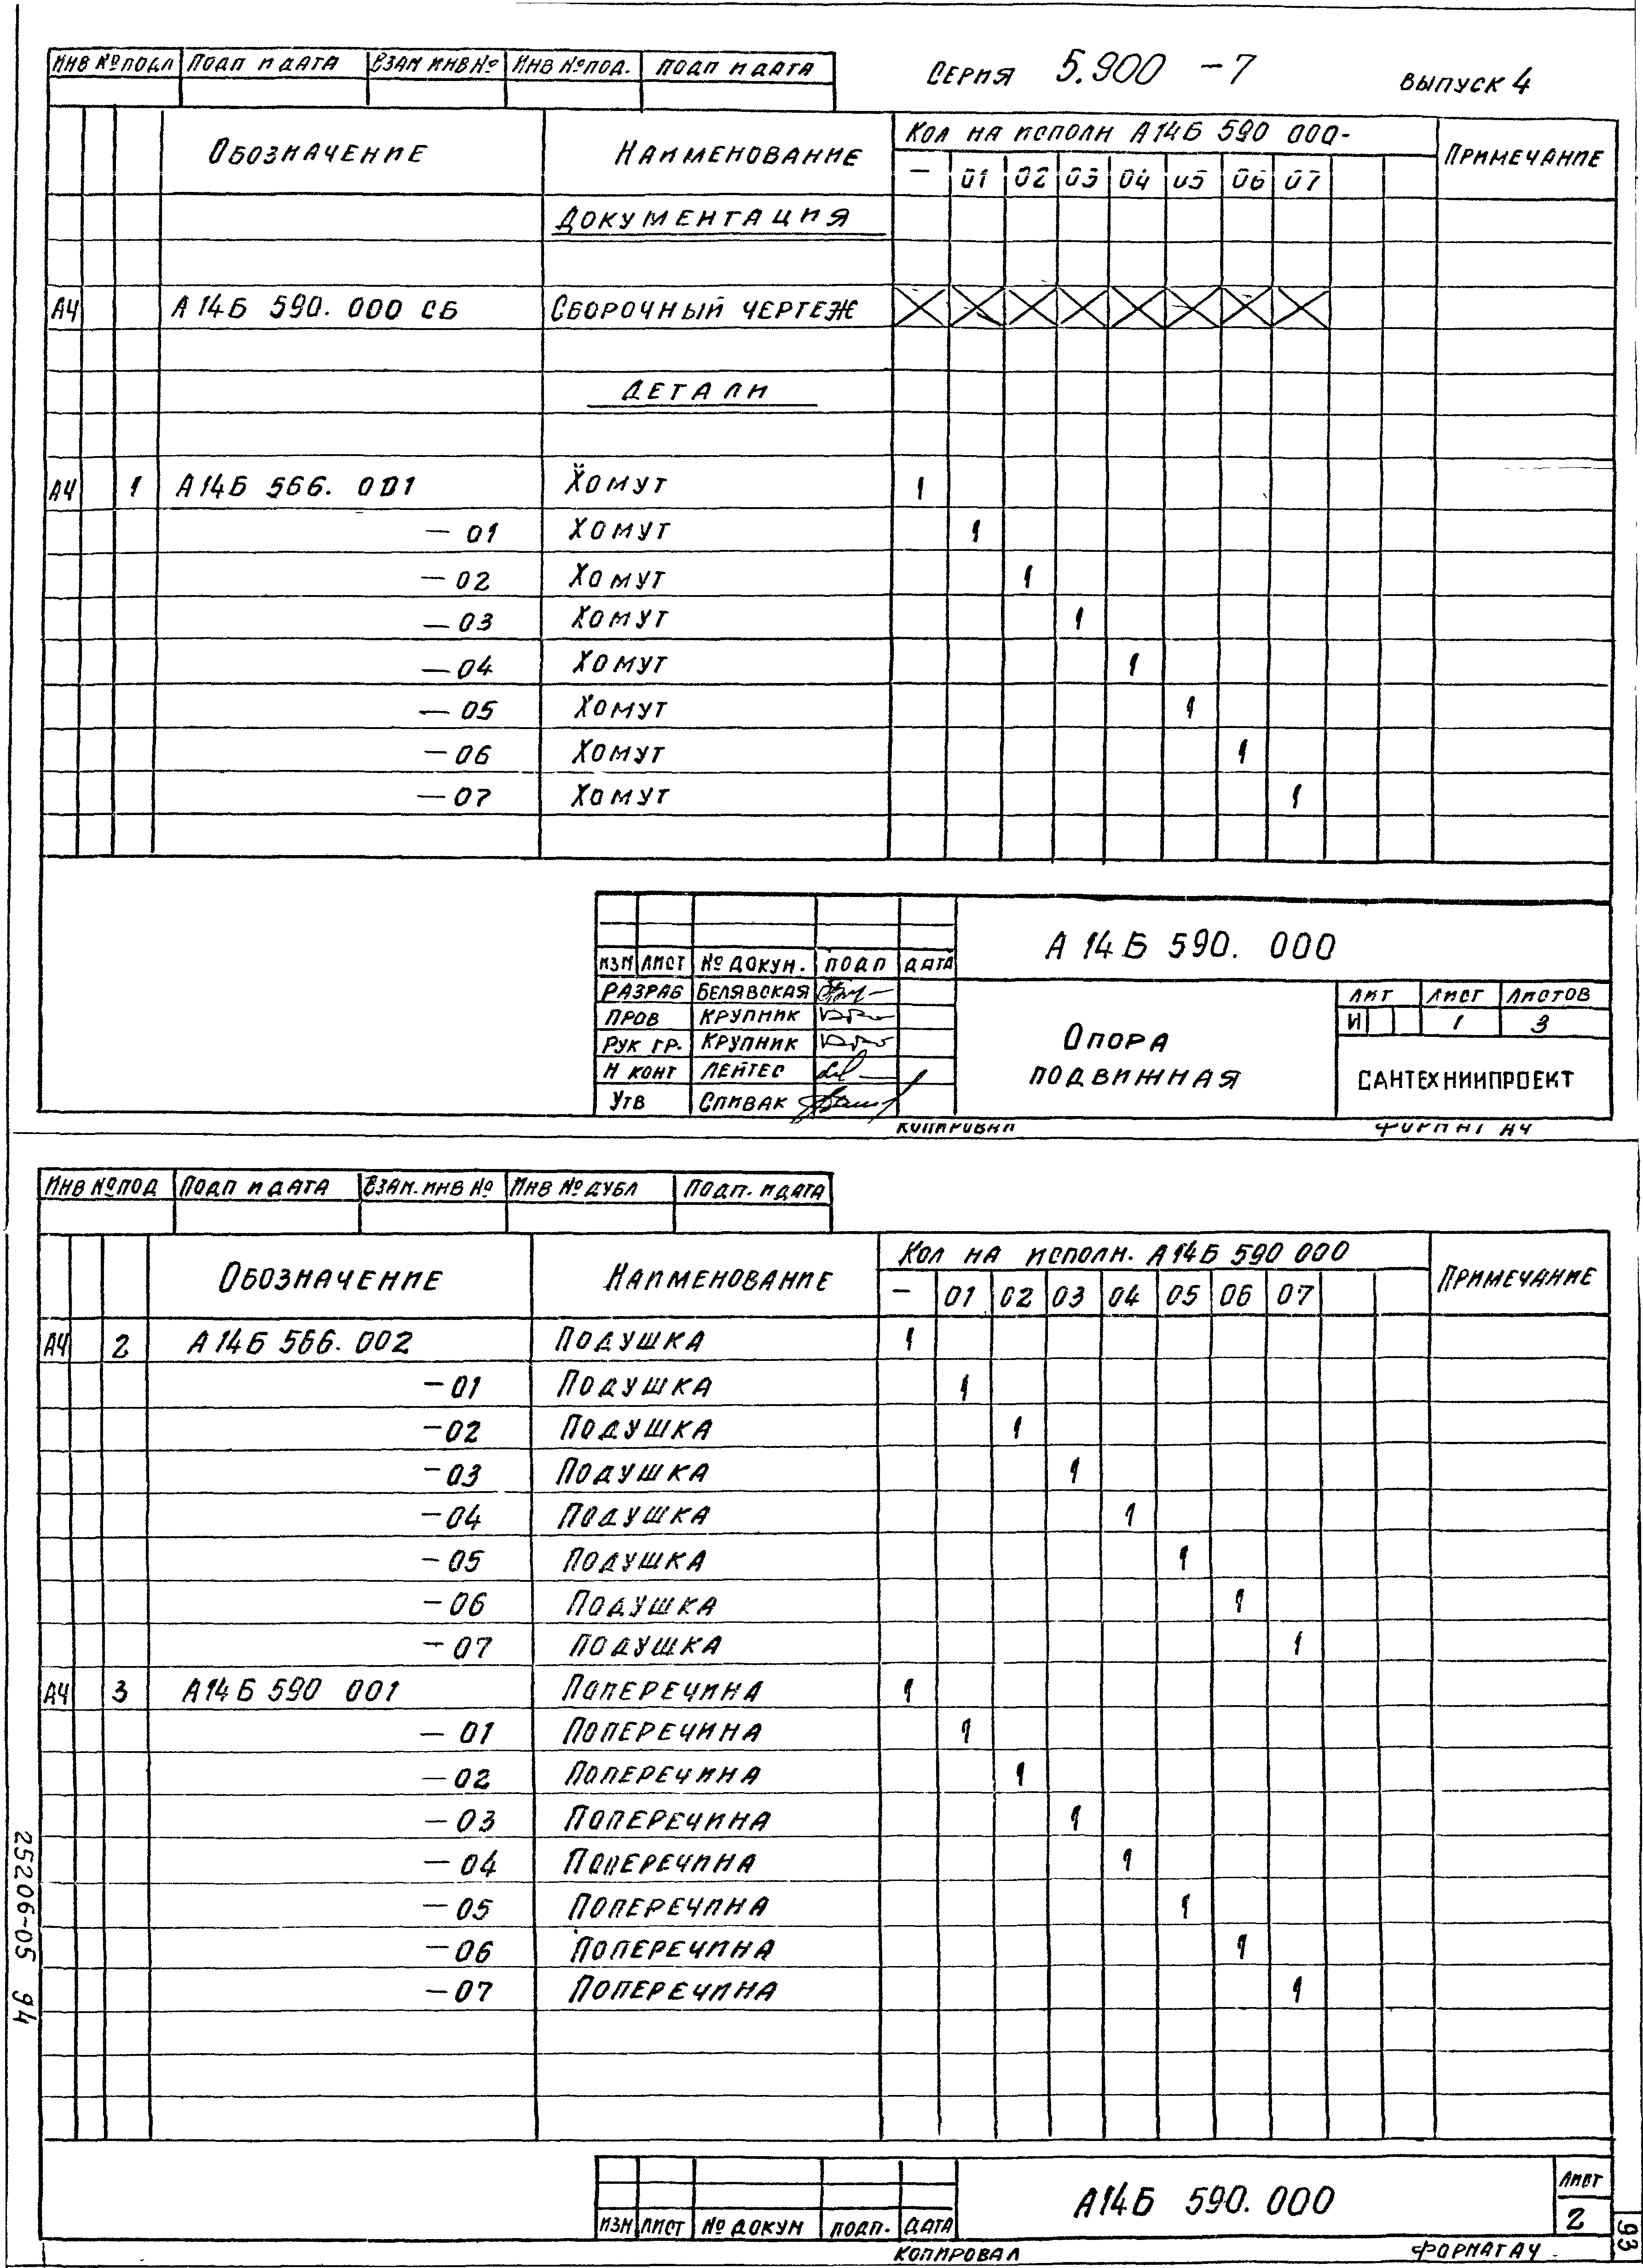 ИНВ № ПОДЛ ПОДП И ДАТА ВЗАМ ИНВ № ИНВ № ПОД. ПОДП И ДАТА
СЕРИЯ 5.900 -7 ВЫПУСК 4
ОБОЗНАЧЕНИЕ НАИМЕНОВАНИЕ КОЛ НА ИСПОЛН А14Б 590 000- ПРИМЕЧАНИЕ
— 01 02 03 04 05 06 07
ДОКУМЕНТАЦИЯ
А4 А14Б 590. 000 СБ СБОРОЧНЫЙ ЧЕРТЕЖ
ДЕТАЛИ
А4 1 А14Б 566. 001 ХОМУТ 1
— 01 ХОМУТ 1
— 02 ХОМУТ 1
— 03 ХОМУТ 1
— 04 ХОМУТ 1
— 05 ХОМУТ 1
— 06 ХОМУТ 1
— 07 ХОМУТ 1
А14Б 590. 000
ИЗМ ЛИСТ № ДОКУМ. ПОДП ДАТА
РАЗРАБ БЕЛЯВСКАЯ
ПРОВ КРУПНИК
РУК ГР. КРУПНИК
Н КОНТ ЛЕЙТЕС
УТВ СПИВАК
ОПОРА
ПОДВИЖНАЯ
ЛИТ ЛИСТ ЛИСТОВ
И 1 3
САНТЕХНИИПРОЕКТ
КОПИРОВАЛ ФОРМАТ А4
ИНВ № ПОД ПОДП И ДАТА ВЗАМ. ИНВ № ИНВ № ДУБЛ ПОДП. И ДАТА
ОБОЗНАЧЕНИЕ НАИМЕНОВАНИЕ КОЛ НА ИСПОЛН. А14Б 590 000 ПРИМЕЧАНИЕ
— 01 02 03 04 05 06 07
А4 2 А14Б 566. 002 ПОДУШКА 1
— 01 ПОДУШКА 1
— 02 ПОДУШКА 1
— 03 ПОДУШКА 1
— 04 ПОДУШКА 1
— 05 ПОДУШКА 1
— 06 ПОДУШКА 1
— 07 ПОДУШКА 1
А4 3 А14Б 590 001 ПОПЕРЕЧИНА 1
— 01 ПОПЕРЕЧИНА 1
— 02 ПОПЕРЕЧИНА 1
— 03 ПОПЕРЕЧИНА 1
— 04 ПОПЕРЕЧИНА 1
— 05 ПОПЕРЕЧИНА 1
— 06 ПОПЕРЕЧИНА 1
— 07 ПОПЕРЕЧИНА 1
25206-05 94
ИЗМ ЛИСТ № ДОКУМ ПОДП. ДАТА
А14Б 590. 000
ЛИСТ
2
93
КОПИРОВАЛ ФОРМАТ А4